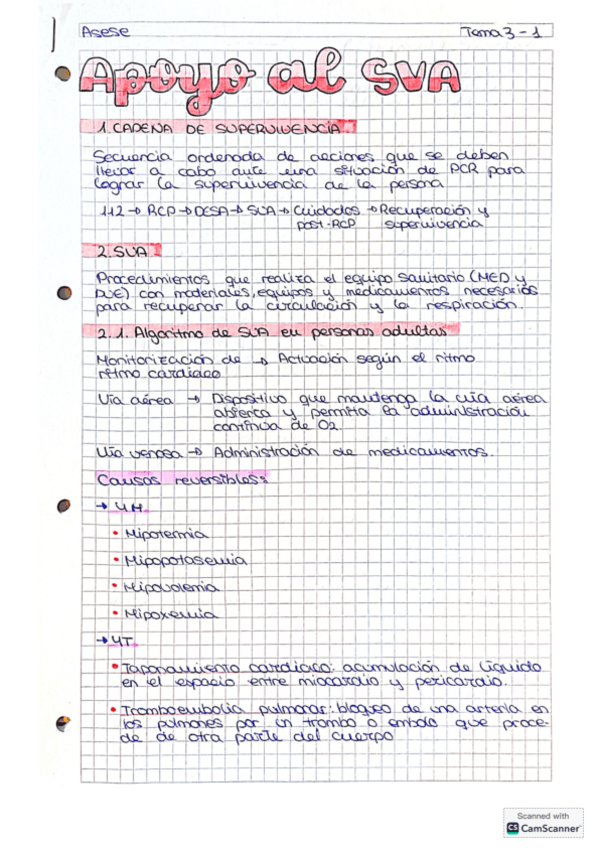 Asese
Tema 3 - 1
Apoyo al SVA
1. CADENA DE SUPERVIVENCIA.
Secuencia ordenada de acciones que se deben
llevar a cabo ante una situación de PCR para
lograr la supervivencia de la persona
112 → RCP → DESA → SVA → Cuidados → Recuperación y
post-RCP supervivencia
2. SVA
Procedimientos que realiza el equipo sanitario (MED y
DUE) con materiales, equipos y medicamentos necesarios
para recuperar la circulación y la respiración.
2.1. Algoritmo de SVA en personas adultas
Monitorización de → Actuación según el ritmo
ritmo cardiaco
Vía aérea → Dispositivo que mantenga la vía aérea
abierta y permita la administración
continua de O2.
Vía venosa → Administración de medicamentos.
Causas reversibles:
→ 4H
• Hipotermia
• Hipopotasemia
• Hipovolemia
• Hipoxemia
→ 4T
• Taponamiento cardiaco: acumulación de líquido
en el espacio entre miocardio y pericardio.
• Tromboembolia pulmonar: bloqueo de una arteria en
los pulmones por un trombo o émbolo que proce-
de de otra parte del cuerpo
Scanned with
CS CamScanner